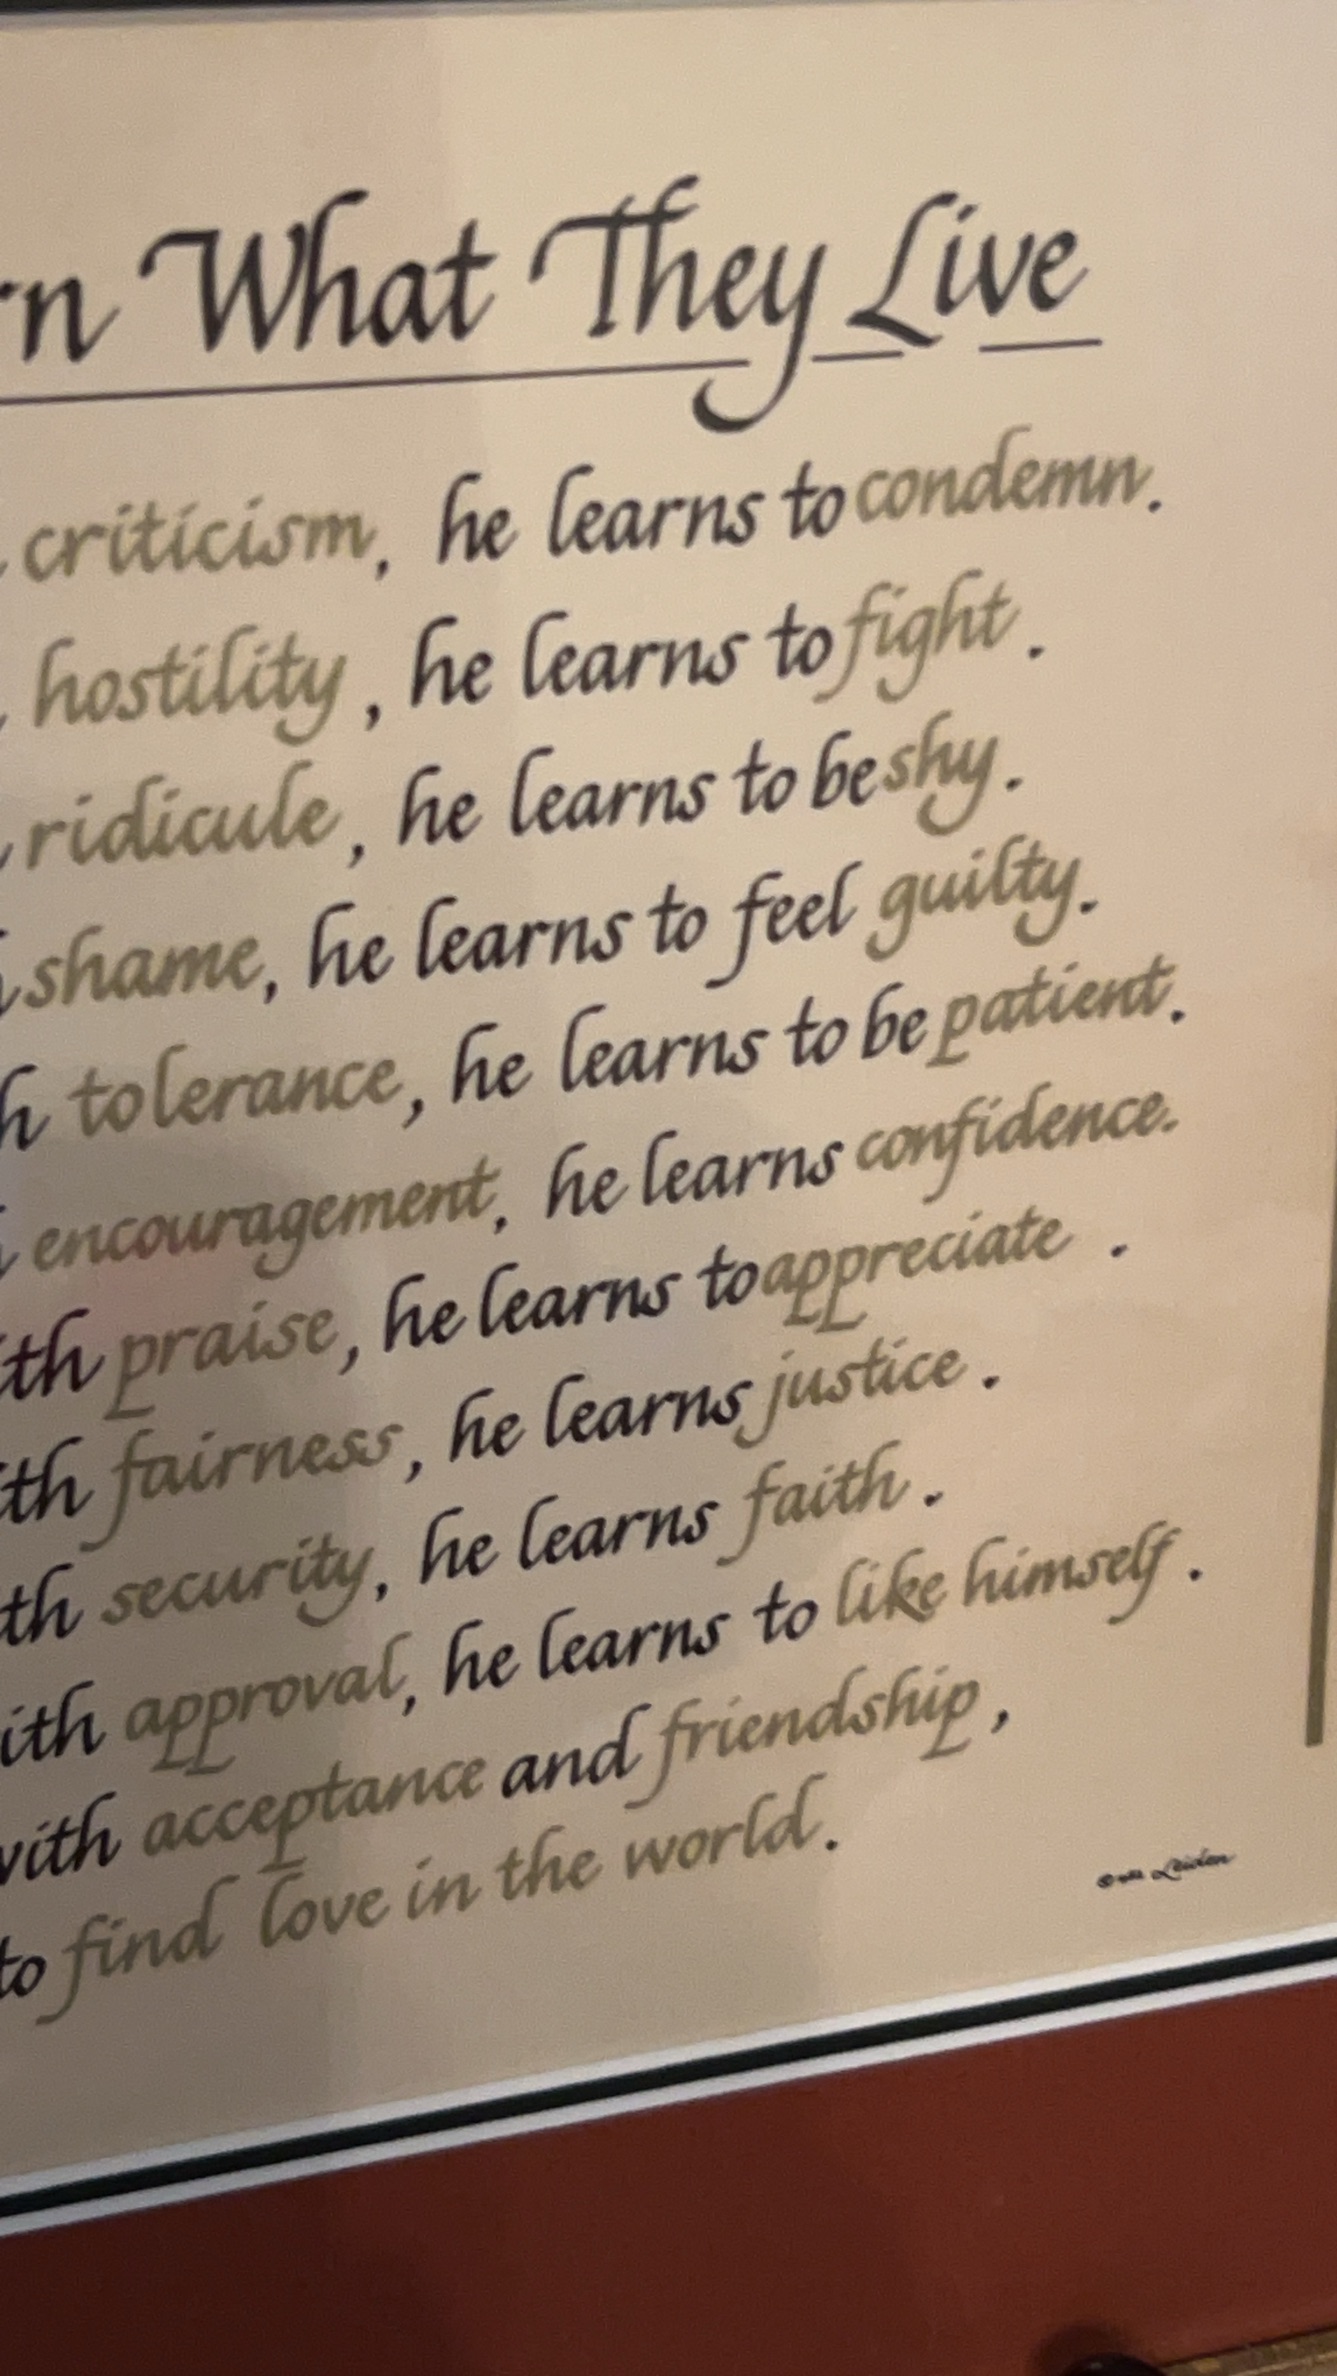 rn What They Live
criticism, he learns to condemn.
hostility, he learns to fight.
ridicule, he learns to be shy.
shame, he learns to feel guilty.
h tolerance, he learns to be patient.
encouragement, he learns confidence.
ith praise, he learns to appreciate.
ith fairness, he learns justice.
th security, he learns faith.
ith approval, he learns to like himself.
with acceptance and friendship,
to find love in the world.